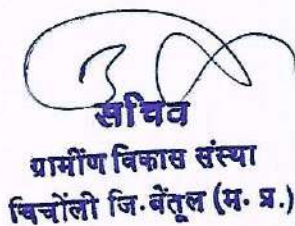 सचिव
ग्रामींण विकास संस्था
चिचोंली जि.बेंतूल (म. प्र.)